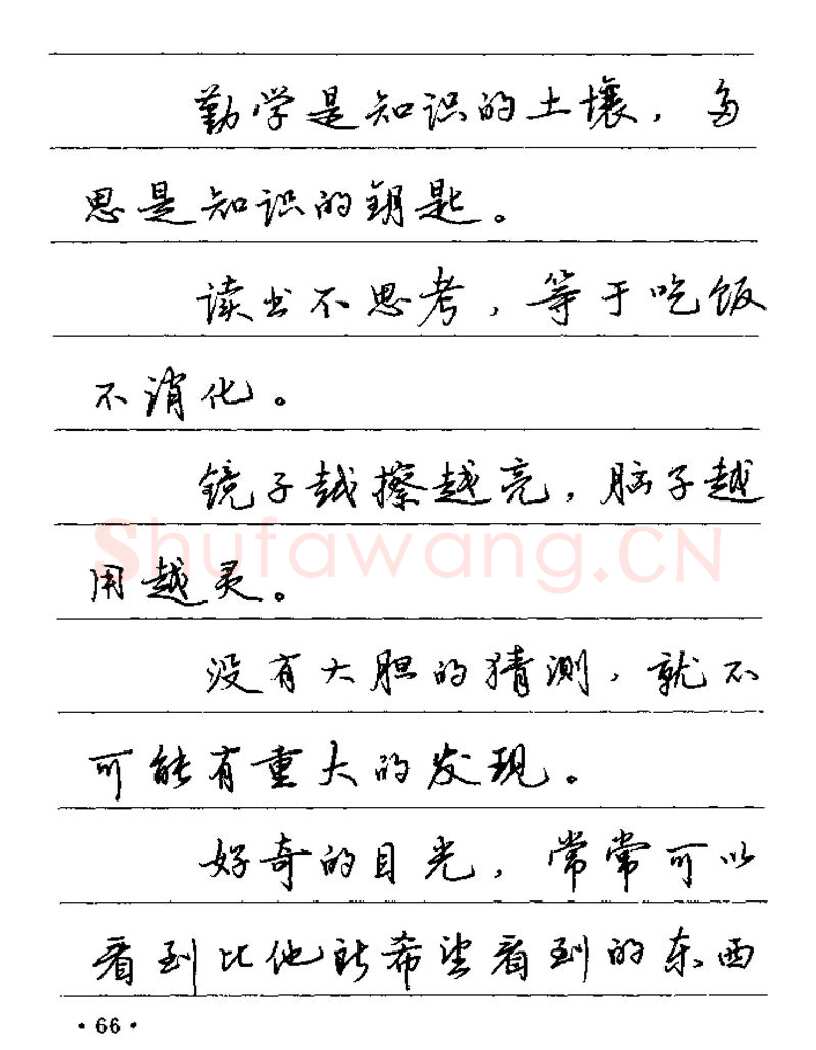 勤学是知识的土壤，多
思是知识的钥匙。
读书不思考，等于吃饭
不消化。
镜子越擦越亮，脑子越
用越灵。
Shufawang.CN
没有大胆的猜测，就不
可能有重大的发现。
好奇的目光，常常可以
看到比他所希望看到的东西
·66·